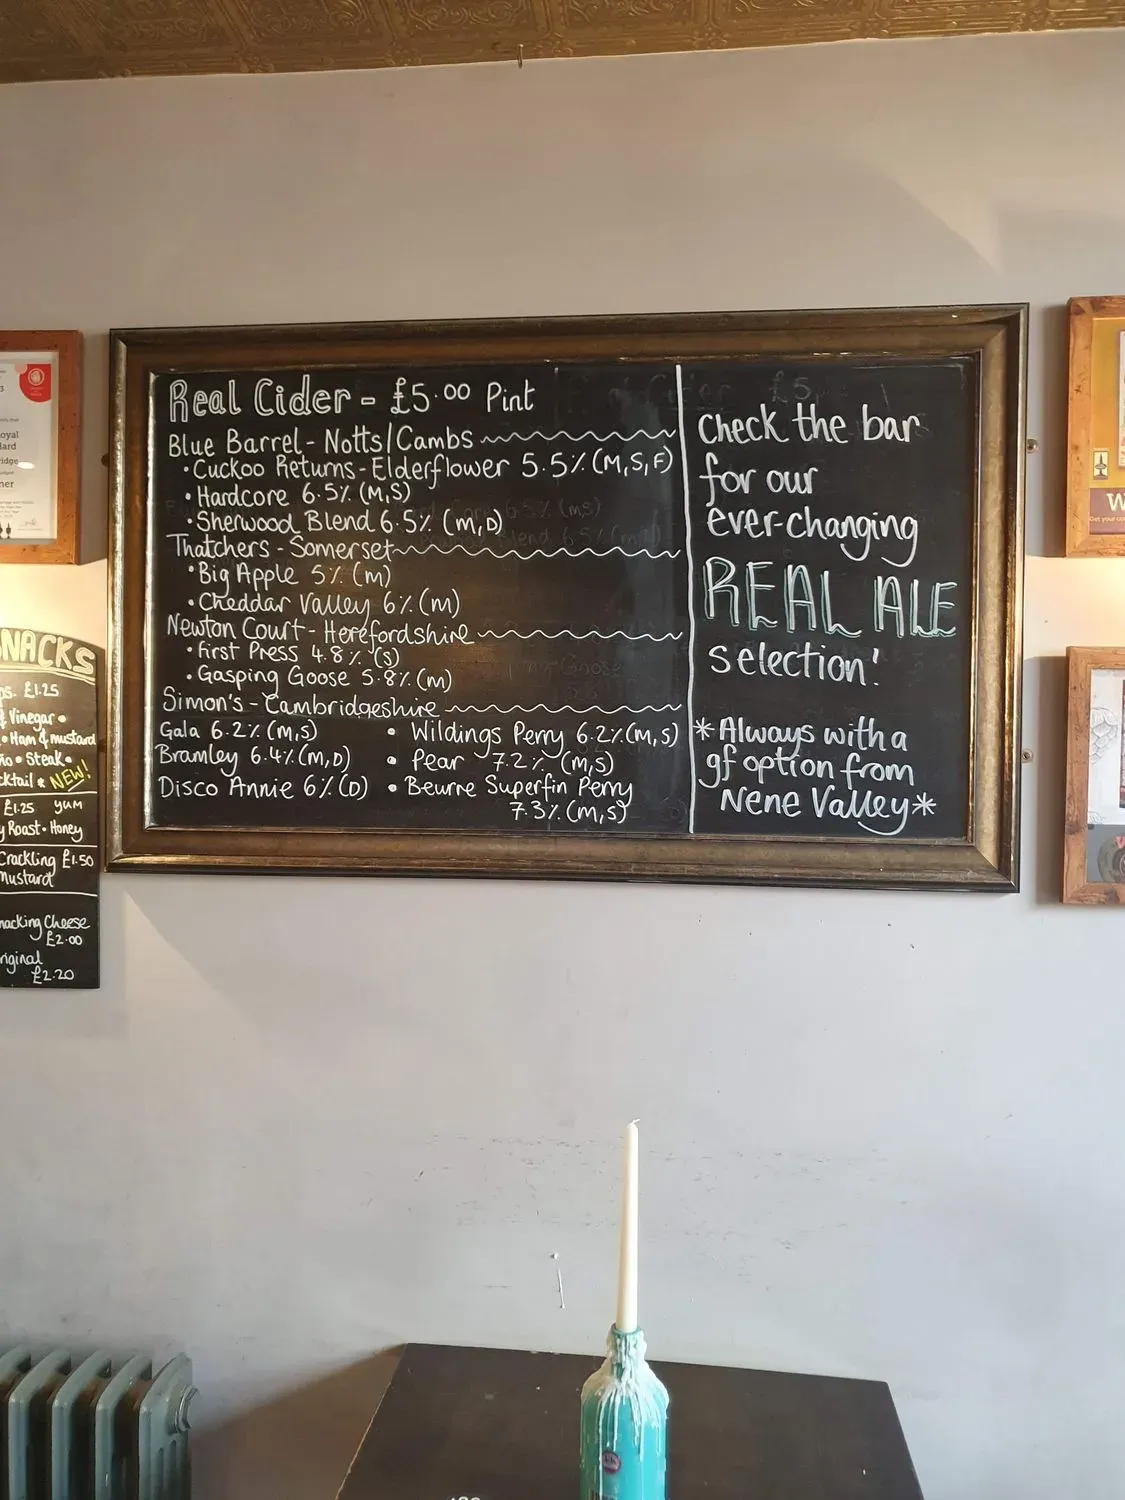 Real Cider - £5.00 Pint
Blue Barrel - Notts/Cambs
• Cuckoo Returns - Elderflower 5.5% (M,S,F)
• Hardcore 6.5% (M,S)
• Sherwood Blend 6.5% (M,D)
Thatchers - Somerset
• Big Apple 5% (M)
• Cheddar Valley 6% (M)
Newton Court - Herefordshire
• First Press 4.8% (S)
• Gasping Goose 5.8% (M)
Simon's - Cambridgeshire
Gala 6.2% (M,S)
Bramley 6.4% (M,D)
Disco Annie 6% (D)
• Wildings Perry 6.2% (M,S)
• Pear 7.2% (M,S)
• Beurre Superfin Perry
7.3% (M,S)
Check the bar
for our
ever-changing
REAL ALE
selection!
*Always with a
gf option from
Nene Valley*
SNACKS
£1.25
Vinegar •
• Ham & mustard
• Steak •
NEW!
£1.25 YUM
Roast • Honey
Crackling £1.50
Mustard
Cheese
£2.00
£2.20